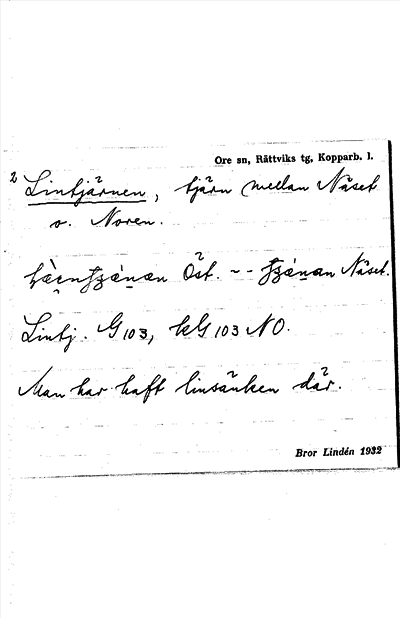 Ore sn, Rättviks tg, Kopparb. l.
2 Lintjärnen, tjärn mellan Näset
o. Noren.
Öst. -- Näset.
Lintj. G 103, kG 103 NO.
Man har haft linsänken där.
Bror Lindén 1932